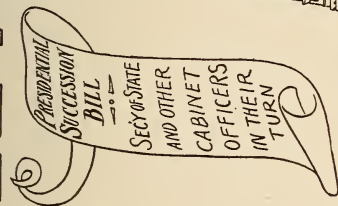 PRESIDENTIAL
SUCCESSION
BILL
SECY OF STATE
AND OTHER
CABINET
OFFICERS
IN THEIR
TURN